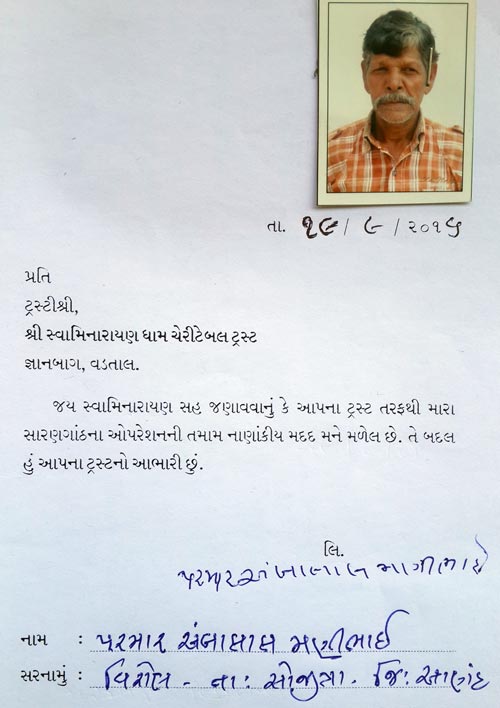 તા. ૧૯ / ૯ / ૨૦૧૬
પ્રતિ
ટ્રસ્ટીશ્રી,
શ્રી સ્વામિનારાયણ ધામ ચેરીટેબલ ટ્રસ્ટ
જ્ઞાનબાગ, વડતાલ.
જય સ્વામિનારાયણ સહ જણાવવાનું કે આપના ટ્રસ્ટ તરફથી મારા
સારણગાંઠના ઓપરેશનની તમામ નાણાંકીય મદદ મને મળેલ છે. તે બદલ
હું આપના ટ્રસ્ટનો આભારી છું.
લિ.
પરમાર અંબાલાલ મણીભાઈ
નામ : પરમાર અંબાલાલ મણીભાઈ
સરનામું : વિરોલ - તા : સોજીત્રા - જિ : આણંદ